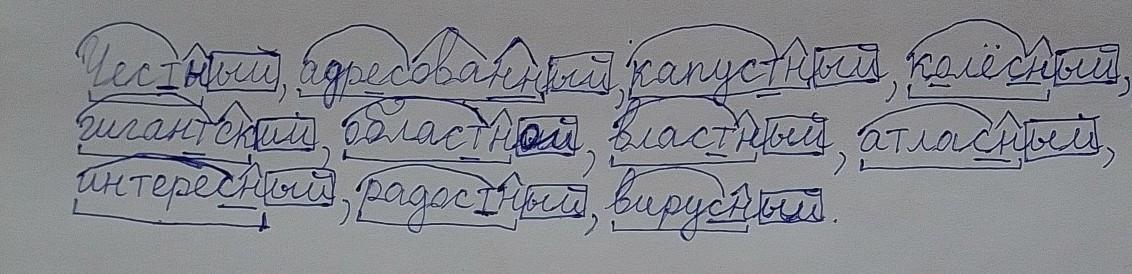 Честный, адресованный, капустный, колёсный,
гигантский, областной, властный, атласный,
интересный, радостный, вирусный.